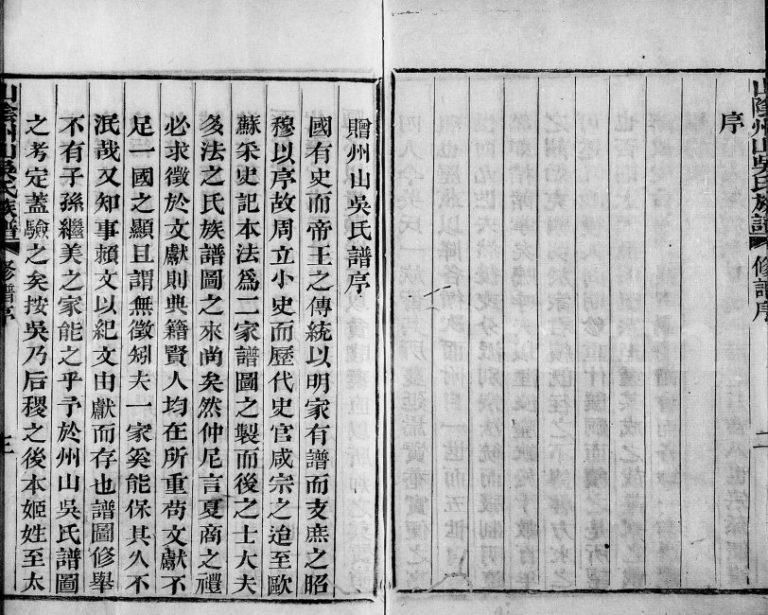 序
山陰州山吳氏族譜
修譜序
贈州山吳氏譜序
國有史而帝王之傳統以明家有譜而支庶之昭
穆以序故周立小史而歷代史官咸宗之迨至歐
蘇采史記本法爲二家譜圖之製而後之士大夫
多法之氏族譜圖之來尚矣然仲尼言夏商之禮
必求徵於文獻則典籍賢人均在所重苟文獻不
足 國之顯且謂無徵矧夫一家奚能保其久不
泯哉又知事賴文以紀文由獻而存也譜圖修舉
不有子孫繼美之家能之乎予於州山吳氏譜圖
之考定蓋驗之矣按吳乃后稷之後本姬姓至太
山陰州山吳氏族譜
修譜序